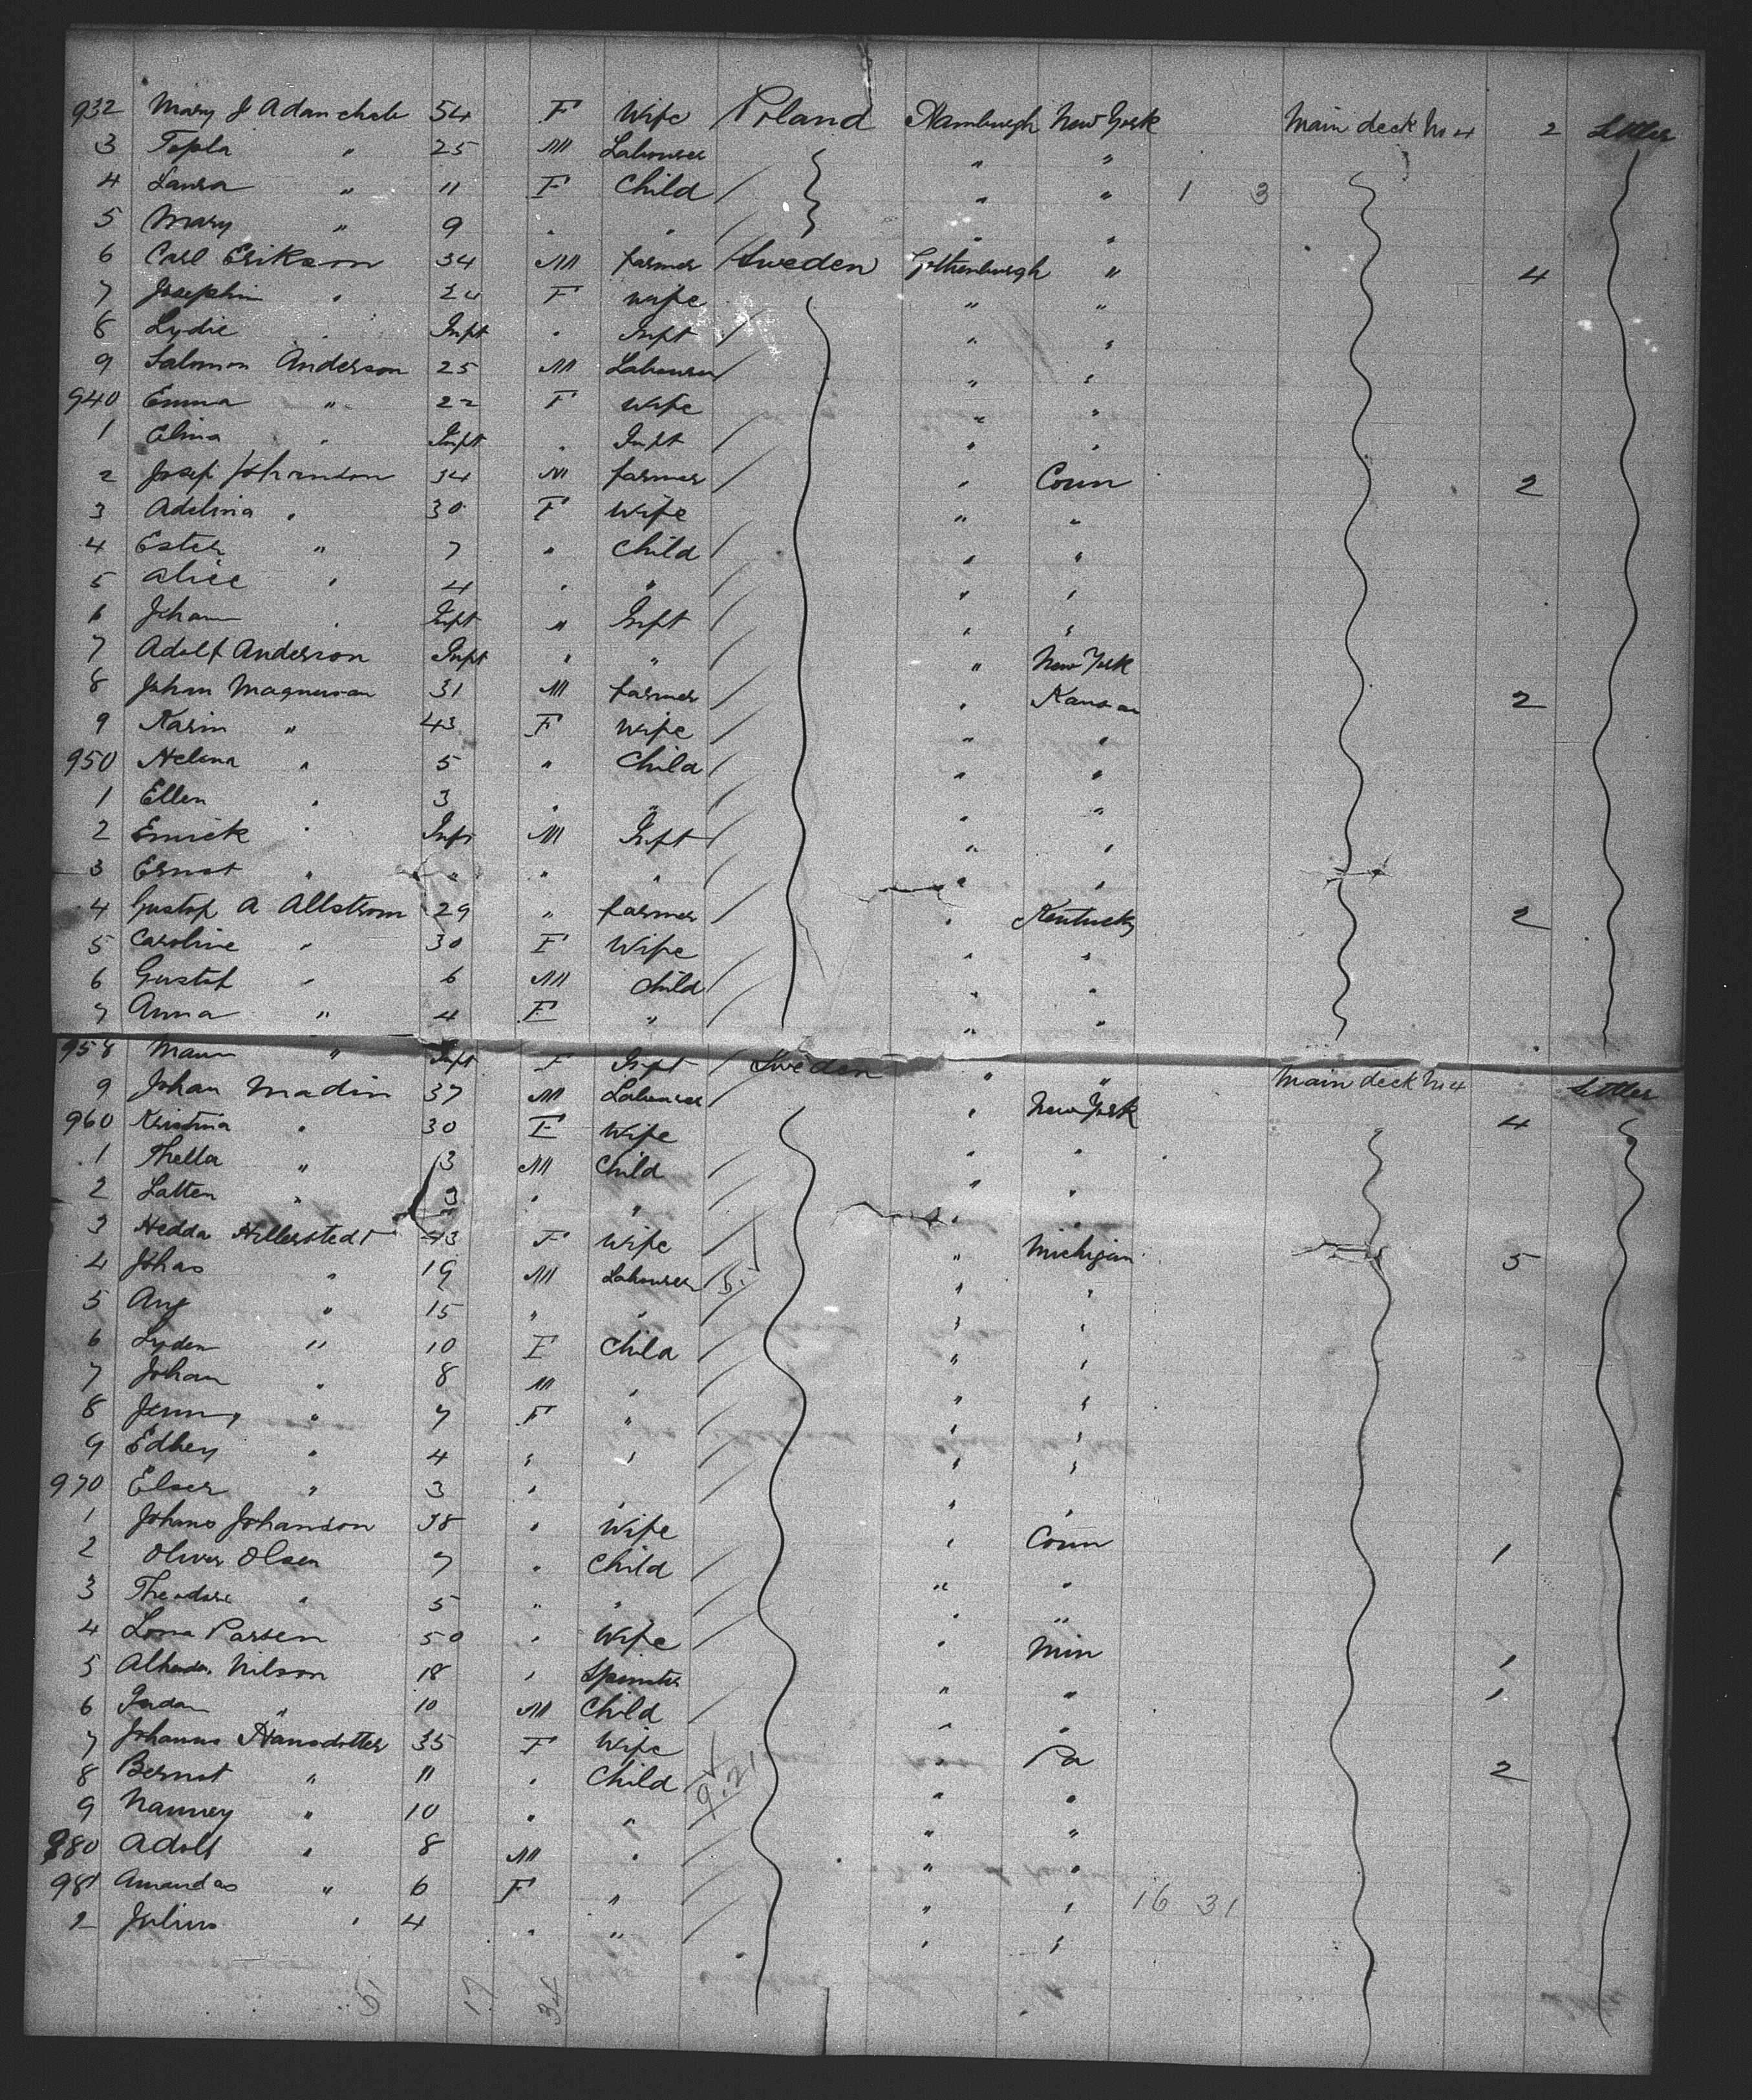 932 Mary J Adamchek 54 F Wife Poland Hamburgh New York Main deck No 4 2 Settler
3 Topla " 25 M Labourer " "
4 Laura " 11 F Child " " 1 3
5 Mary " 9 " " " "
6 Carl Erikson 34 M farmer Sweden Gothenburgh " 4
7 Josephin " 24 F wife " "
8 Lydie " Inft " Inft " "
9 Salomon Anderson 25 M Labourer " "
940 Emma " 22 F Wife " "
1 Elina " Inft " Inft " "
2 Josef Johanson 34 M farmer " Conn 2
3 Adelina " 30 F Wife " "
4 Ester " 7 " Child " "
5 Alice " 4 " " " "
6 Johan " Inft " Inft " "
7 Adolf Anderson Inft " " " New York
8 Johan Magnuson 31 M farmer " Kansas 2
9 Karin " 43 F Wife " "
950 Helena " 5 " Child " "
1 Ellen " 3 " " " "
2 Emrick " Inft M Inft " "
3 Ernst " " " " " "
4 Gustof A Allstrom 29 " farmer " Kentucky 2
5 Caroline " 30 F Wife " "
6 Gustof " 6 M Child " "
7 Anna " 4 F " " "
958 " Inft F Inft Sweden " " Main deck No 4 Settler
9 Johan Madin 37 M Labourer " New York 4
960 Kristina " 30 F Wife " "
1 Thella " 3 M Child " "
2 Latten " 3 " " " "
3 Hedda Hillerstedt 43 F Wife " Michigan 5
4 Johas " 19 M Labourer " "
5 Aug " 15 " " " "
6 Lyden " 10 F Child " "
7 Johan " 8 M " " "
8 Jenny " 7 F " " "
9 Edhey " 4 " " " "
970 Elser " 3 " " " "
1 Johans Johanson 38 " Wife " Conn 1
2 Oliver Olsen 7 " Child " "
3 Theodore " 5 " " " "
4 Lona Parsen 50 " Wife " Min 1
5 Nilson 18 " Spinster " " 1
6 " 10 M Child " "
7 Johanns Hansdotter 35 F Wife " Pa 2
8 Bernst " 11 " Child " "
9 Nanney " 10 " " " "
980 Adolf " 8 M " " "
981 Amandas " 6 F " " " 16 31
2 Julius " 4 " " " "
51 17 34